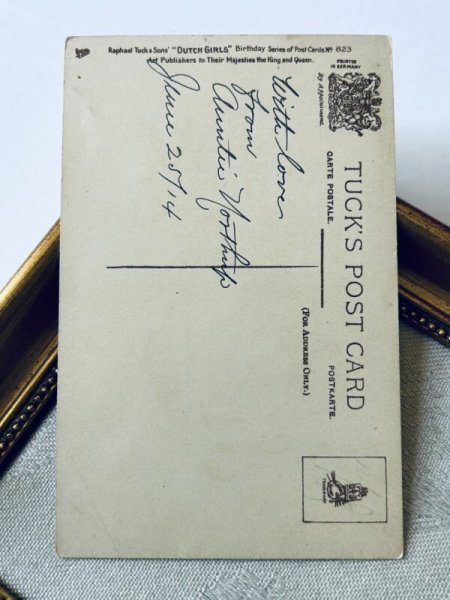 Raphael Tuck & Sons' "DUTCH GIRLS" Birthday Series of Post Cards Nº 823
Art Publishers to Their Majesties the King and Queen.
PRINTED
IN GERMANY
By Appointment.
TUCK'S POST CARD
CARTE POSTALE.
POSTKARTE.
(FOR ADDRESS ONLY.)
With love
from
Auntie Northup
June 25/14